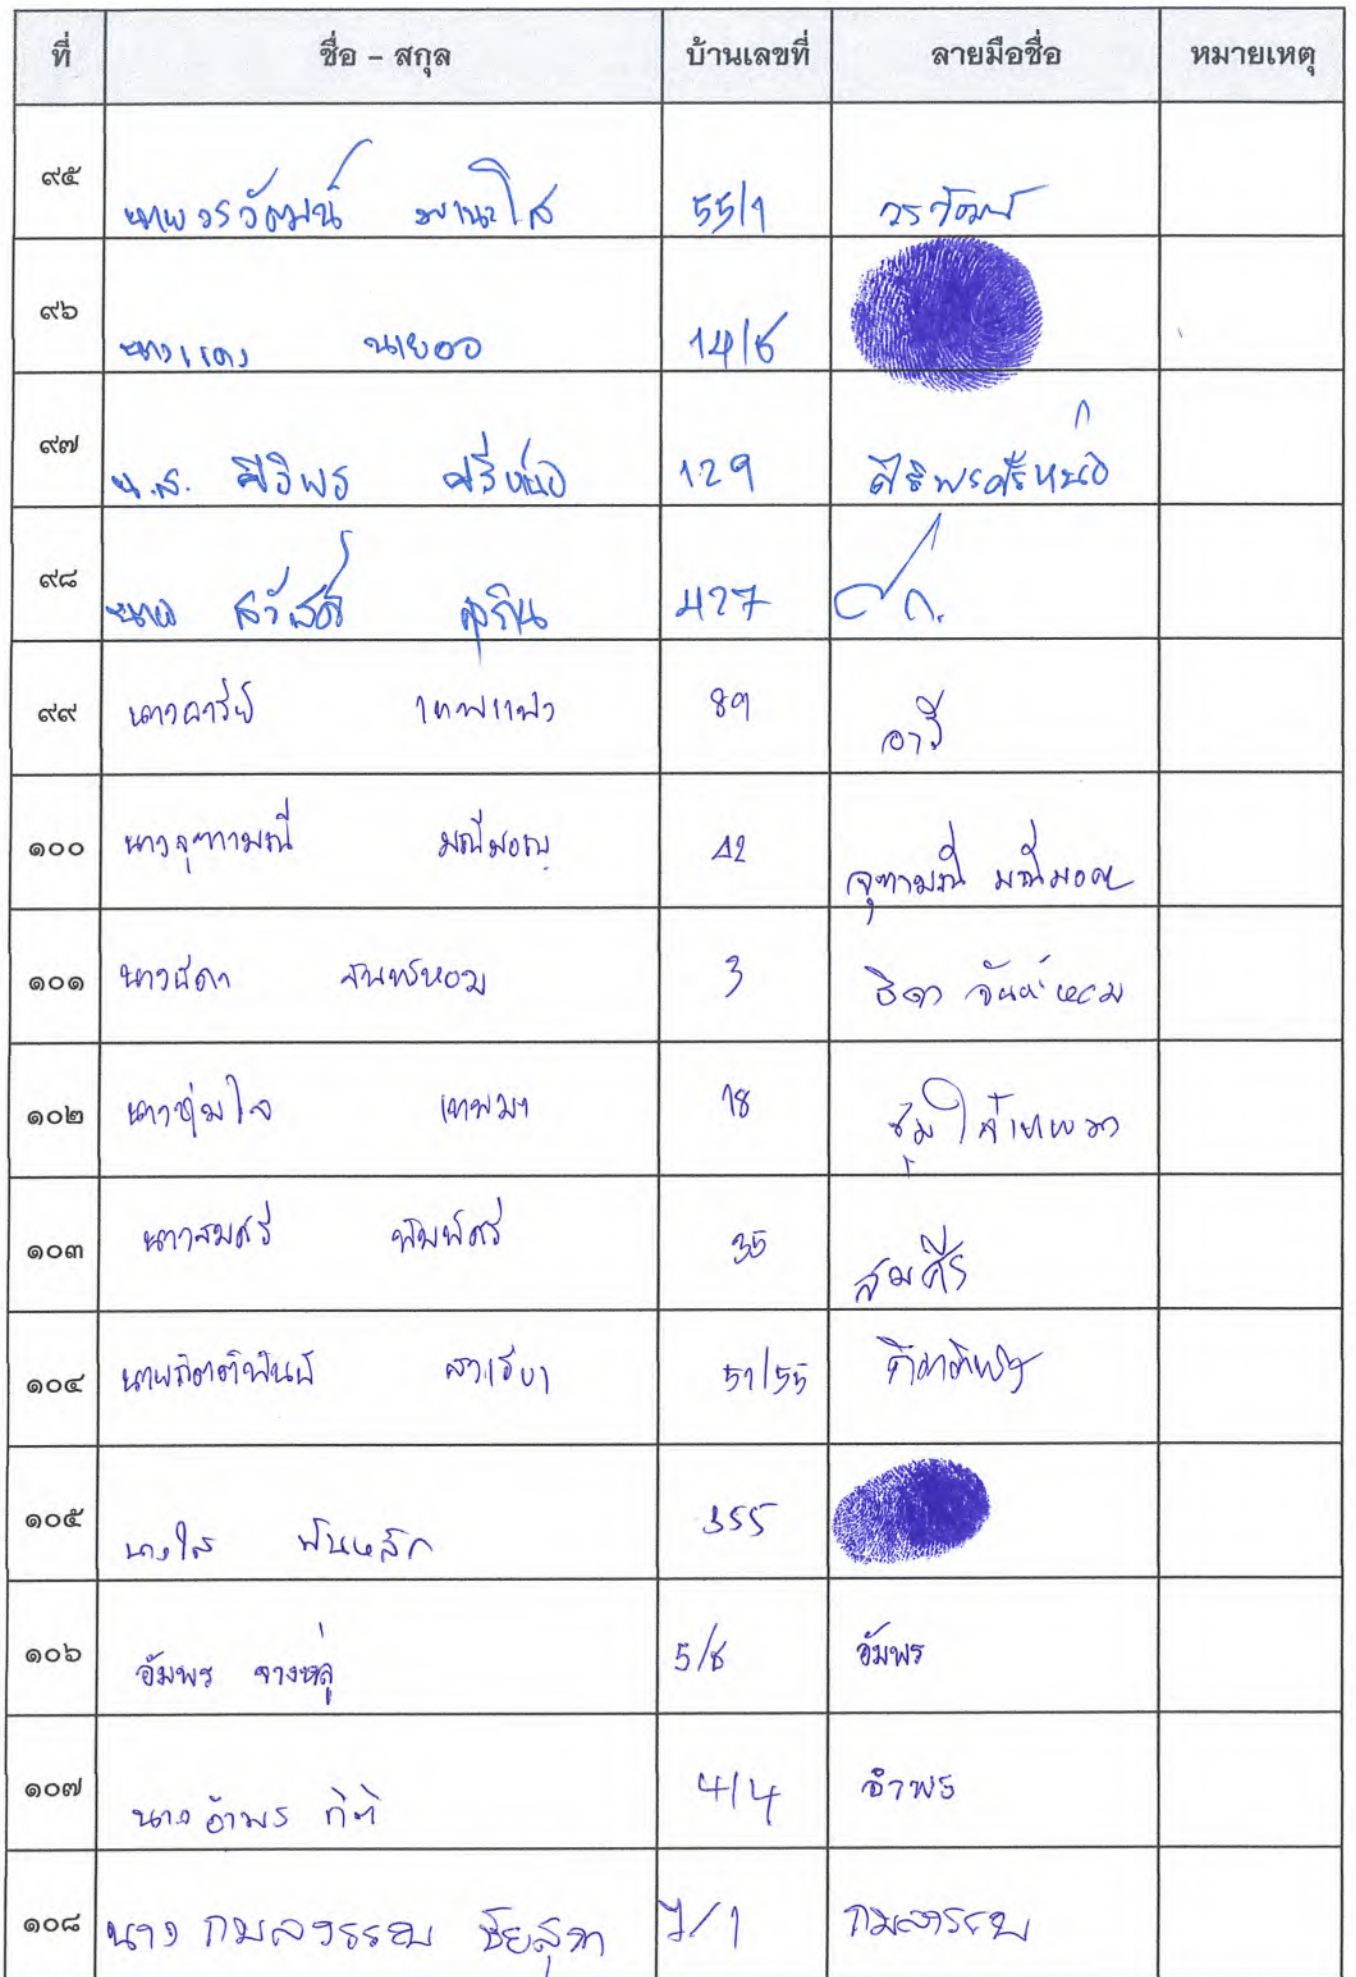 ที่ ชื่อ - สกุล บ้านเลขที่ ลายมือชื่อ หมายเหตุ
๙๕ นายวรวัฒน์ มานะใส 55/1 วรวัฒน์
๙๖ นางแดง นายออ 14/8
๙๗ น.ส. ศิริพร ศรีหน่อ 129 ศิริพร ศรีหน่อ
๙๘ นาย สวัสดิ์ 427
๙๙ นางอารีย์ 89 อารี
๑๐๐ นางจุฑามณี มณีมอญ 42 จุฑามณี มณีมอญ
๑๐๑ นางธิดา จันทร์หอม 3 ธิดา จันทร์หอม
๑๐๒ นางชุ่มใจ เทพมา 18 ชุ่มใจ เทพมา
๑๐๓ นางสมศรี พิมพ์ศรี 35 สมศรี
๑๐๔ นายกิตติพันธ์ 51/55
๑๐๕ นางใส พันหลัก 355
๑๐๖ อัมพร 5/8 อัมพร
๑๐๗ นาง อำพร กิติ 4/4 อำพร
๑๐๘ นาง กมลวรรณ ชัยสุภา 7/1 กมลวรรณ